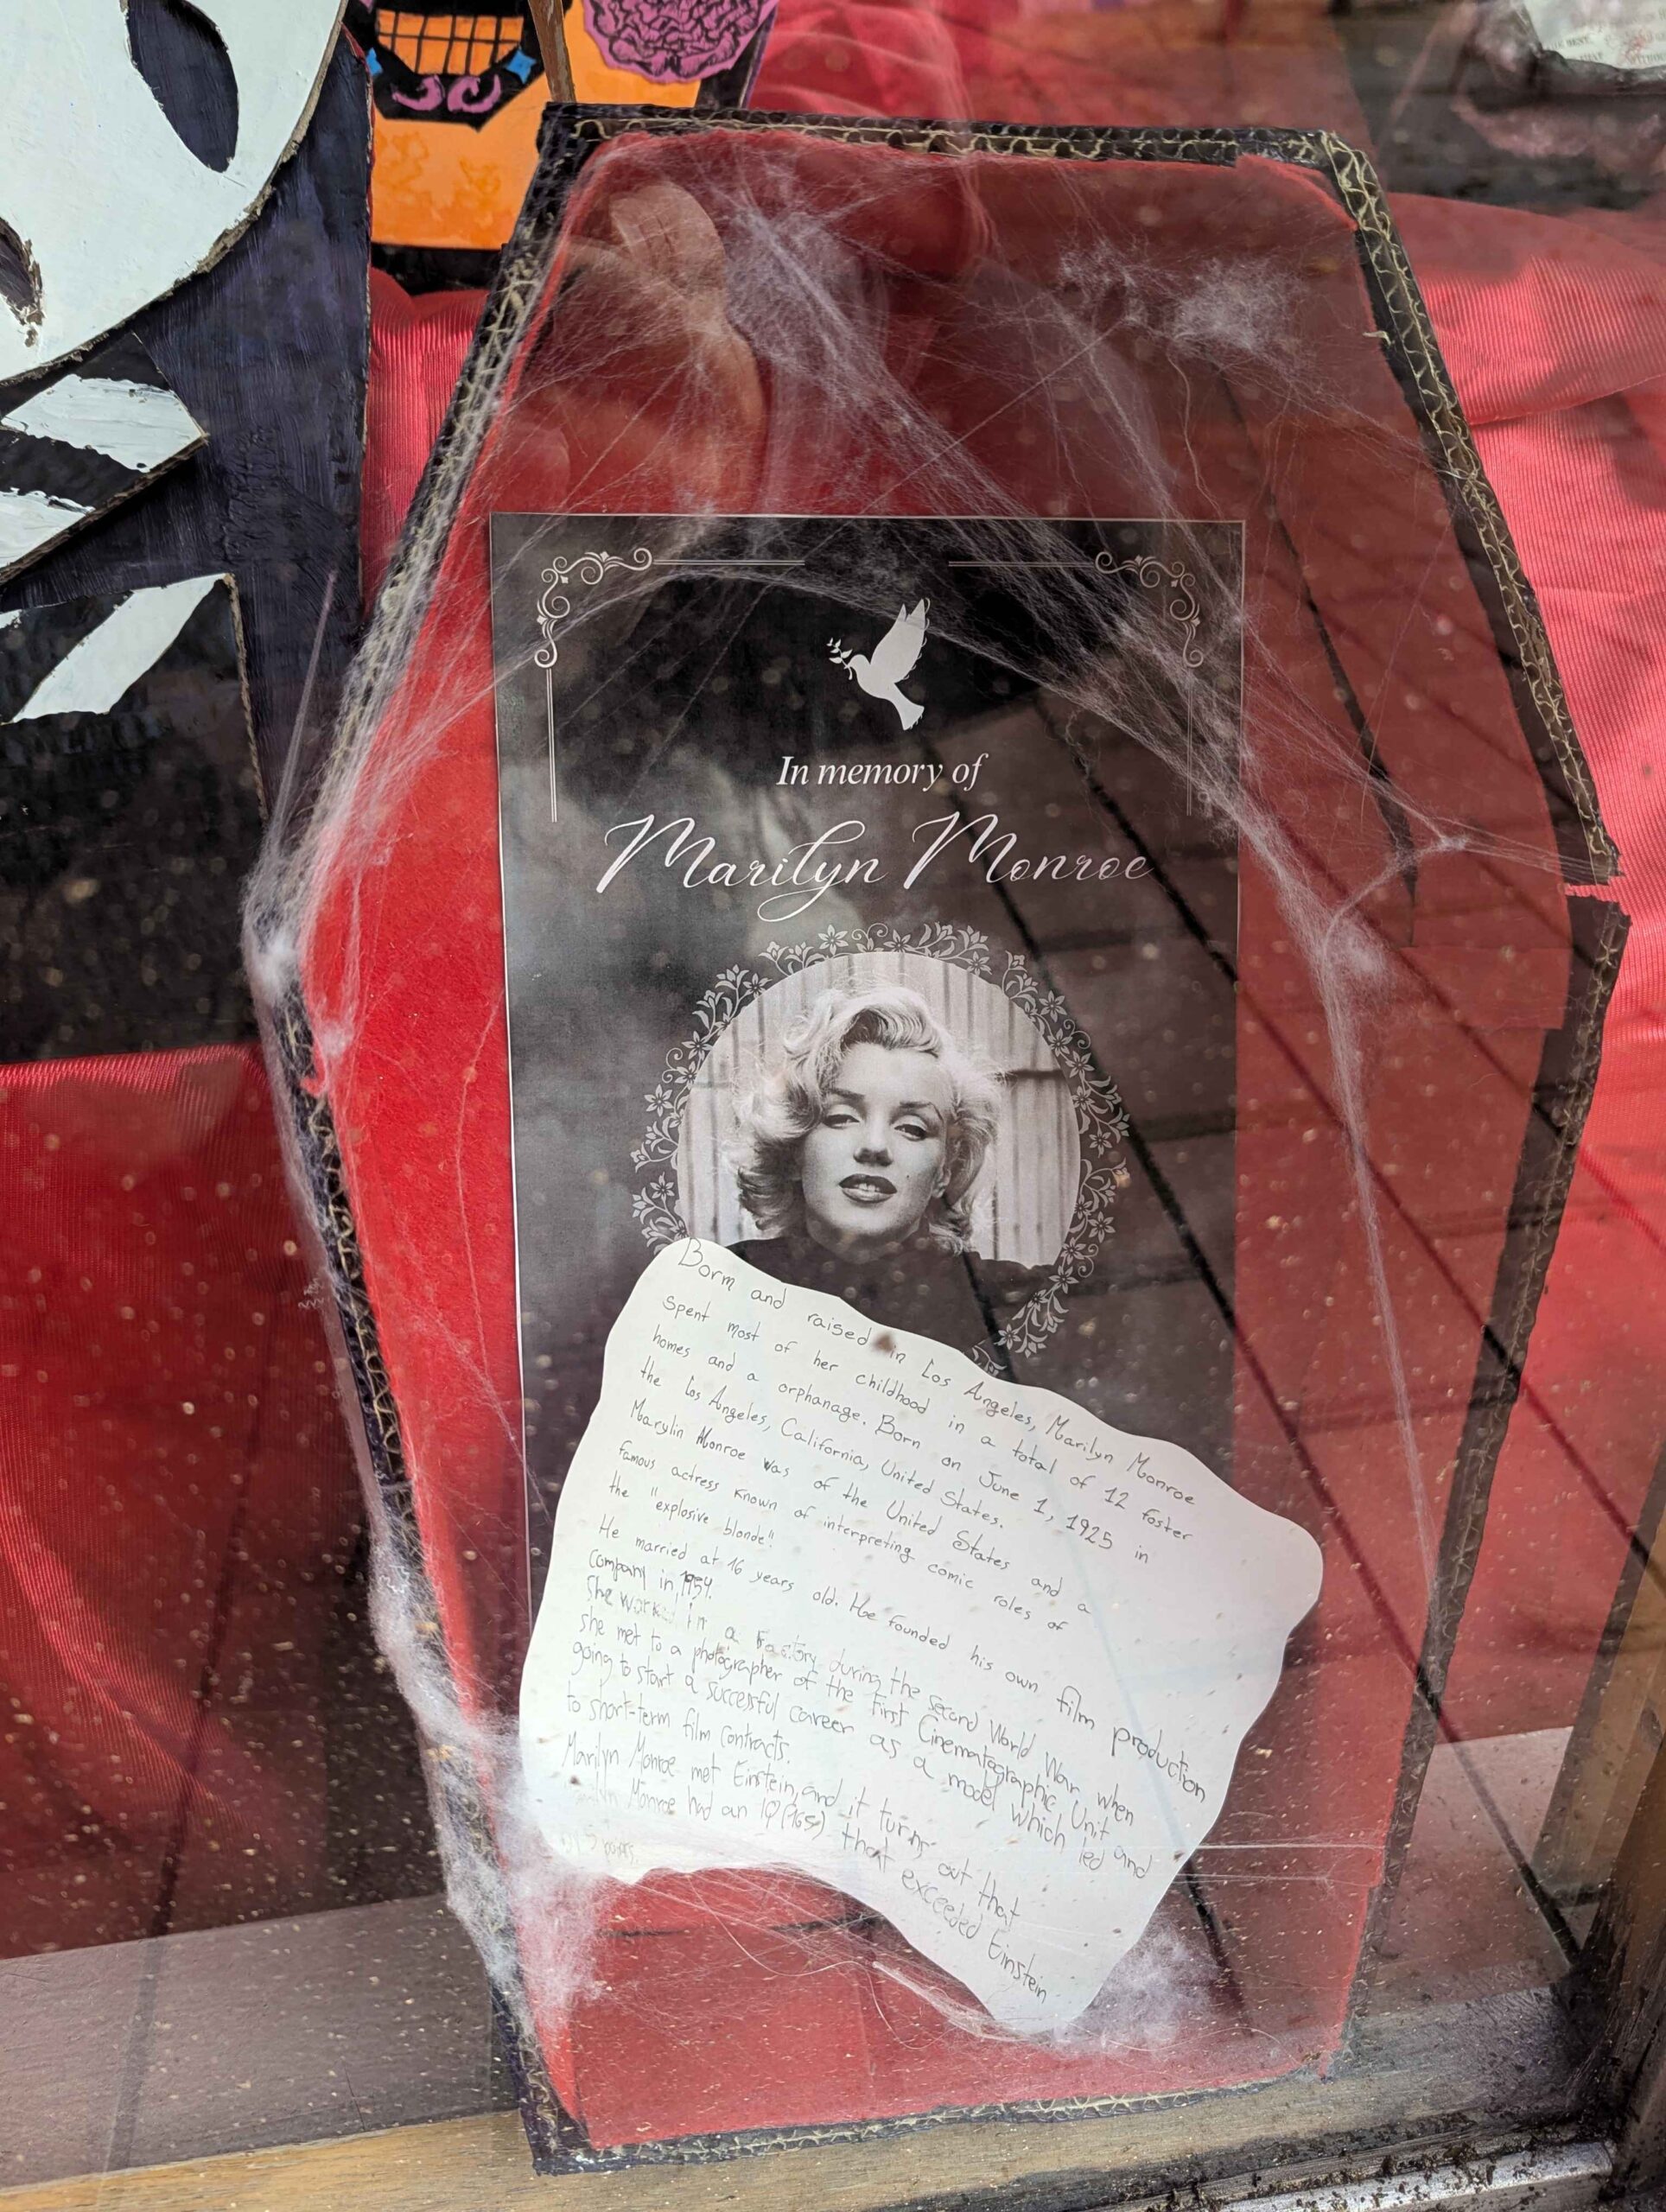 In memory of
Marilyn Monroe
Born and raised in Los Angeles, Marilyn Monroe
spent most of her childhood in a total of 12 foster
homes and a orphanage. Born on June 1, 1925 in
the Los Angeles, California, United States.
Marylin Monroe was of the United States and a
famous actress known of interpreting comic roles of
the "explosive blonde".
He married at 16 years old. He founded his own film production
Company in 1954.
She worked in a factory during the second World War when
she met to a photographer of the First Cinematographic Unit and
going to start a successful career as a model which led
to short-term film contracts.
Marilyn Monroe met Einstein, and it turns out that
Marilyn Monroe had an IQ (165) that exceeded Einstein
5 points.